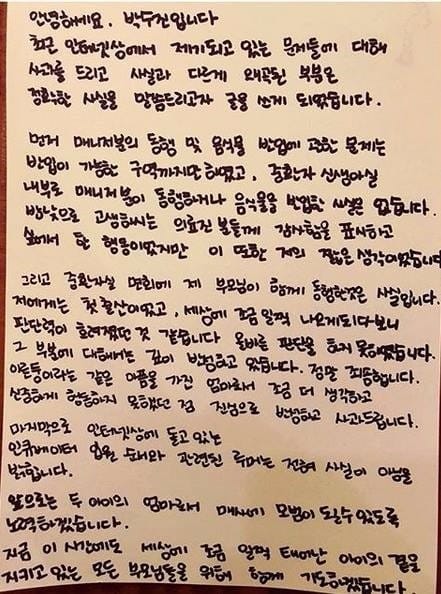 안녕하세요. 박수진입니다
최근 인터넷상에서 제기되고 있는 문제들에 대해
사과를 드리고 사실과 다르게 왜곡된 부분은
정확한 사실을 말씀드리고자 글을 쓰게 되었습니다.
먼저 매니저분의 동행 및 음식물 반입에 관한 문제는
반입이 가능한 구역까지만 하였고, 중환자 신생아실
내부로 매니저분이 동행하거나 음식물을 반입한 사실은 없습니다.
밤낮으로 고생하시는 의료진 분들께 감사함을 표시하고
싶어서 한 행동이었지만 이 또한 저의 짧은 생각이었습니다
그리고 중환자실 면회에 제 부모님이 함께 동행한것은 사실입니다.
저에게는 첫 출산이었고, 세상에 조금 일찍 나오게되다보니
판단력이 흐려졌던 것 같습니다 올바른 판단을 하지 못하였습니다.
그 부분에 대해서는 깊이 반성하고 있습니다. 정말 죄송합니다.
이른둥이라는 같은 아픔을 가진 엄마로서 조금 더 생각하고
신중하게 행동하지 못했던 점 진심으로 반성하고 사과드립니다.
마지막으로 인터넷상에 돌고 있는
인큐베이터 입원 순서와 관련된 루머는 전혀 사실이 아님을
밝힙니다.
앞으로는 두 아이의 엄마로서 매사에 모범이 되실수 있도록
노력하겠습니다.
지금 이 시간에도 세상에 조금 일찍 태어난 아이의 곁을
지키고 있는 모든 부모님들을 위해 함께 기도하겠습니다.